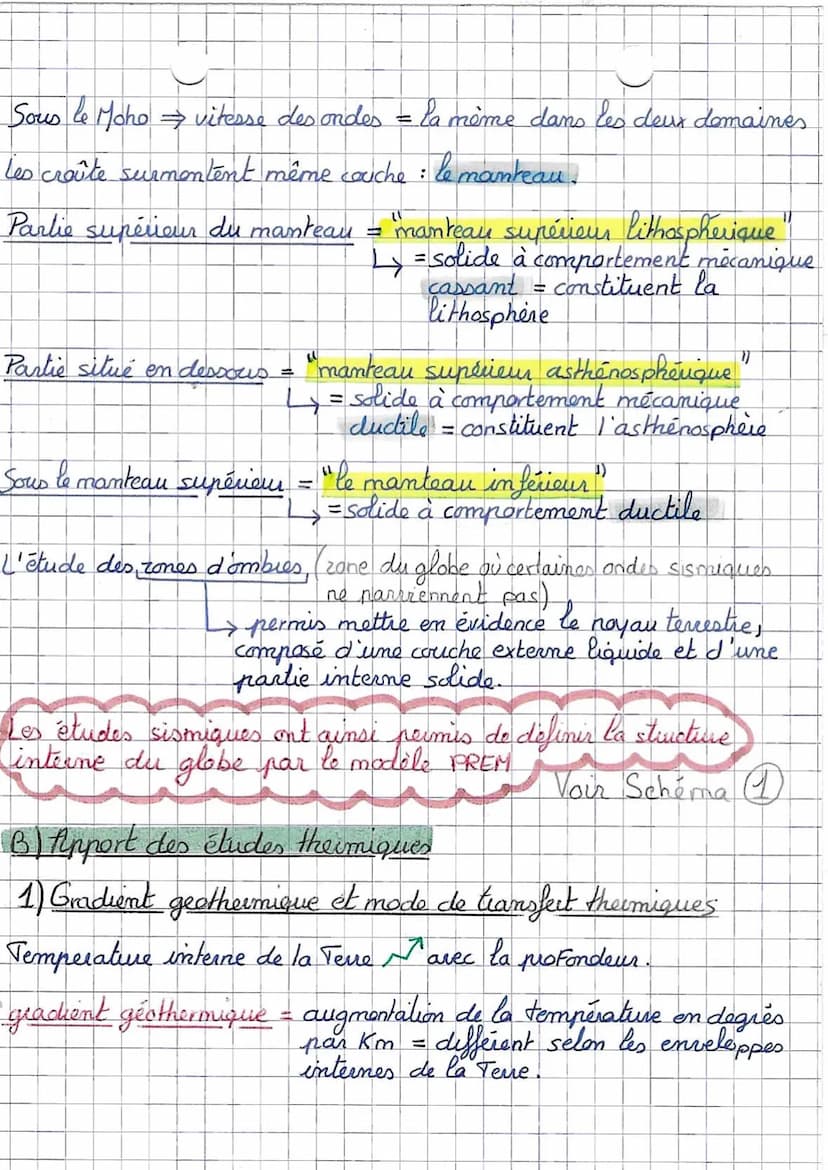 Sous le Moho ⇒ vitesse des ondes = la même dans les deux domaines
Les croûte surmontent même couche : le manteau.
Partie supérieur du manteau = "manteau supérieur lithosphérique"
↳ = solide à comportement mécanique
cassant = constituent la
lithosphère
Partie situé en dessous = "manteau supérieur asthénosphérique"
↳ = solide à comportement mécanique
ductile = constituent l'asthénosphère
Sous le manteau supérieur = "le manteau inférieur"
↳ = solide à comportement ductile
L'étude des zones d'ombres, (zone du globe où certaines ondes sismiques
ne parviennent pas)
↳ permis mettre en évidence le noyau terrestre,
composé d'une couche externe liquide et d'une
partie interne solide.
Les études sismiques ont ainsi permis de définir la structure
interne du globe par le modèle PREM
Voir Schéma 1
B) Apport des études thermiques
1) Gradient geothermique et mode de transfert thermiques
Temperature interne de la Terre ↗ avec la profondeur.
gradient géothermique = augmentation de la température en degrés
par Km = différent selon les enveloppes
internes de la Terre.